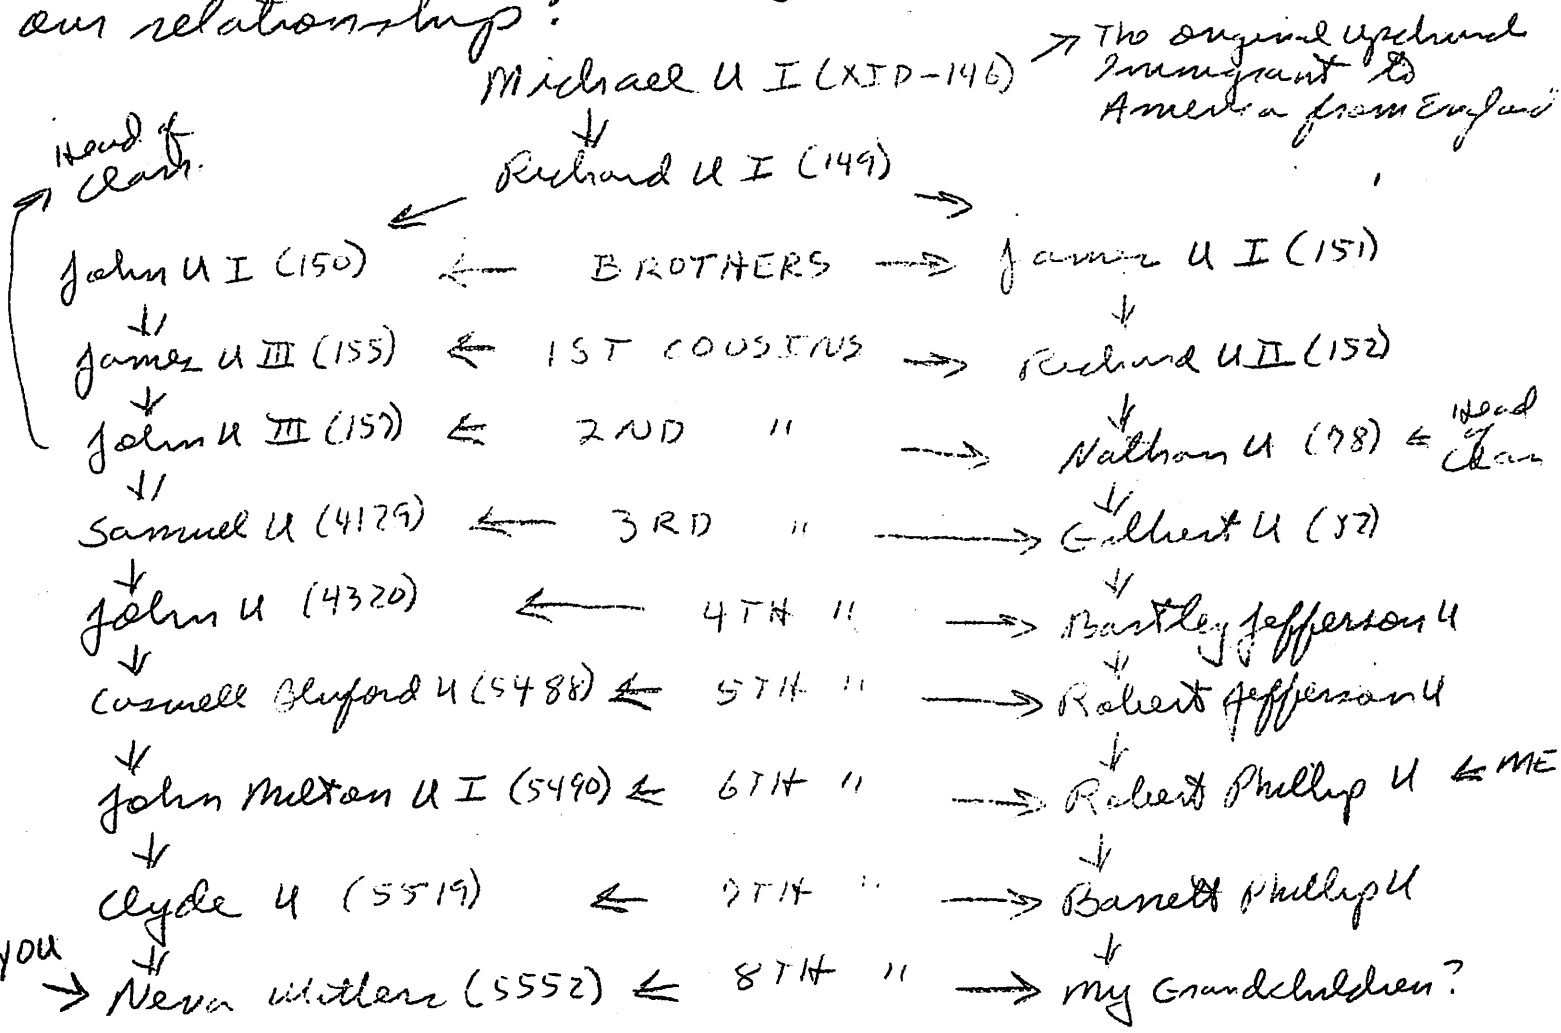 our relationship?
Michael U I (XID-146) → The original Upchurch
Immigrant to
America from England
Head of
Clan.
Richard U I (149)
John U I (150) ← BROTHERS → James U I (151)
James U III (155) ← 1ST COUSINS → Richard U II (152)
John U III (157) ← 2ND " → Nathan U (78) ← Head of Clan
Samuel U (4129) ← 3RD " → Gilbert U
John U (4320) ← 4TH " → Bartley Jefferson U
Caswell Bluford U (5488) ← 5TH " → Robert Jefferson U
John Milton U I (5490) ← 6TH " → Robert Phillip U ← ME
Clyde U (5519) ← 7TH " → Barrett Phillip U
YOU
→ Neva (5552) ← 8TH " → My Grandchildren?